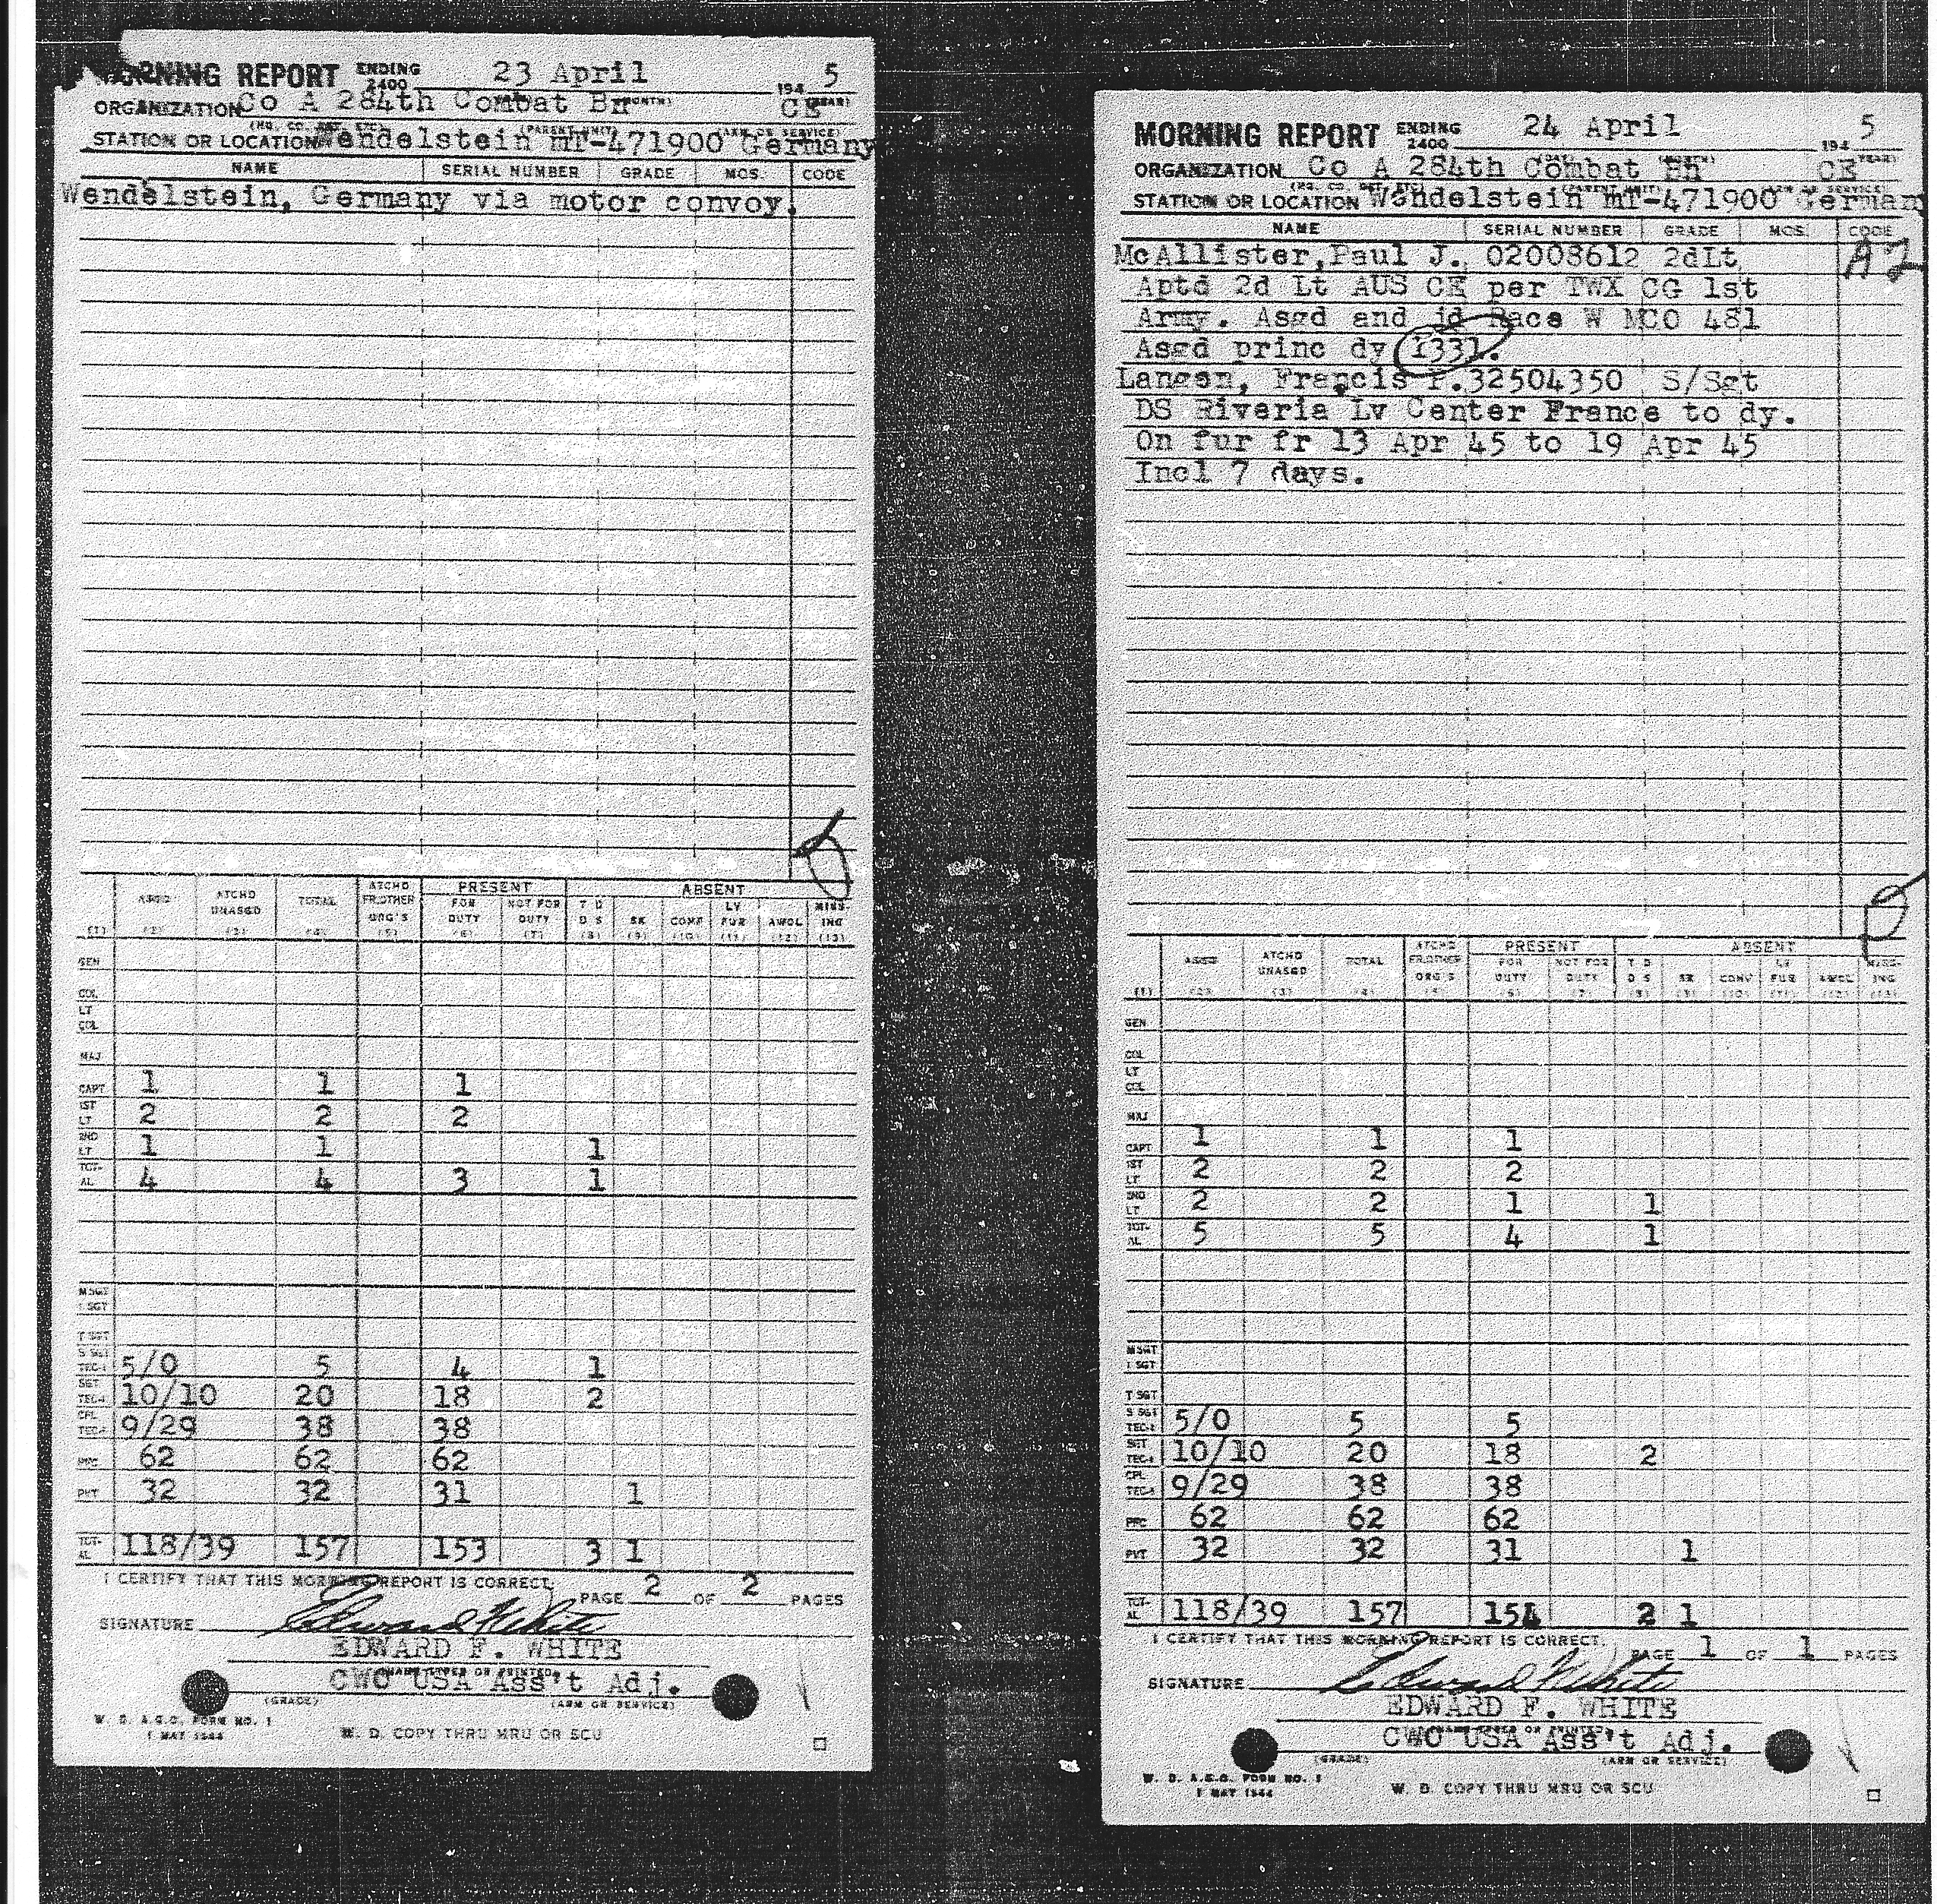 MORNING REPORT ENDING 2400 23 April 194 5
ORGANIZATION Co A 284th Combat Bn CE
STATION OR LOCATION Wendelstein mT-471900 Germany
NAME SERIAL NUMBER GRADE MOS. CODE
Wendelstein, Germany via motor convoy.
ASGD ATCHD UNASGD TOTAL ATCHD FR.OTHER ORG'S PRESENT FOR DUTY NOT FOR DUTY ABSENT T D D S SK CONF LV FUR AWOL MISS-ING
(1) (2) (3) (4) (5) (6) (7) (8) (9) (10) (11) (12) (13)
GEN
COL
LT COL
MAJ
CAPT 1 1 1
1ST LT 2 2 2
2ND LT 1 1 1
TOT-AL 4 4 3 1
M SGT
1 SGT
T SGT
S SGT TEC-3 5/0 5 4 1
SGT TEC-4 10/10 20 18 2
CPL TEC-5 9/29 38 38
PFC 62 62 62
PVT 32 32 31 1
TOT-AL 118/39 157 153 3 1
I CERTIFY THAT THIS MORNING REPORT IS CORRECT. PAGE 2 OF 2 PAGES
SIGNATURE Edward F White
EDWARD F. WHITE
(NAME TYPED OR PRINTED)
CWO USA Ass't Adj.
(GRADE) (ARM OR SERVICE)
W. D. A.G.O. FORM NO. 1
1 MAY 1944
W. D. COPY THRU MRU OR SCU
MORNING REPORT ENDING 2400 24 April 194 5
ORGANIZATION Co A 284th Combat Bn CE
STATION OR LOCATION Wendelstein mT-471900 German
NAME SERIAL NUMBER GRADE MOS. CODE
McAllister,Paul J. 02008612 2dLt A2
Aptd 2d Lt AUS CE per TWX CG 1st
Army. Asgd and jd Race W MCO 481
Asgd princ dy 1331.
Langen, Francis P.32504350 S/Sgt
DS Riveria Lv Center France to dy.
On fur fr 13 Apr 45 to 19 Apr 45
Incl 7 days.
ASGD ATCHD UNASGD TOTAL ATCHD FR.OTHER ORG'S PRESENT FOR DUTY NOT FOR DUTY ABSENT T D D S SK CONF LV FUR AWOL MISS-ING
(1) (2) (3) (4) (5) (6) (7) (8) (9) (10) (11) (12) (13)
GEN
COL
LT COL
MAJ
CAPT 1 1 1
1ST LT 2 2 2
2ND LT 2 2 1 1
TOT-AL 5 5 4 1
M SGT
1 SGT
T SGT
S SGT TEC-3 5/0 5 5
SGT TEC-4 10/10 20 18 2
CPL TEC-5 9/29 38 38
PFC 62 62 62
PVT 32 32 31 1
TOT-AL 118/39 157 154 2 1
I CERTIFY THAT THIS MORNING REPORT IS CORRECT. PAGE 1 OF 1 PAGES
SIGNATURE Edward F White
EDWARD F. WHITE
(NAME TYPED OR PRINTED)
CWO USA Ass't Adj.
(GRADE) (ARM OR SERVICE)
W. D. A.G.O. FORM NO. 1
1 MAY 1944
W. D. COPY THRU MRU OR SCU